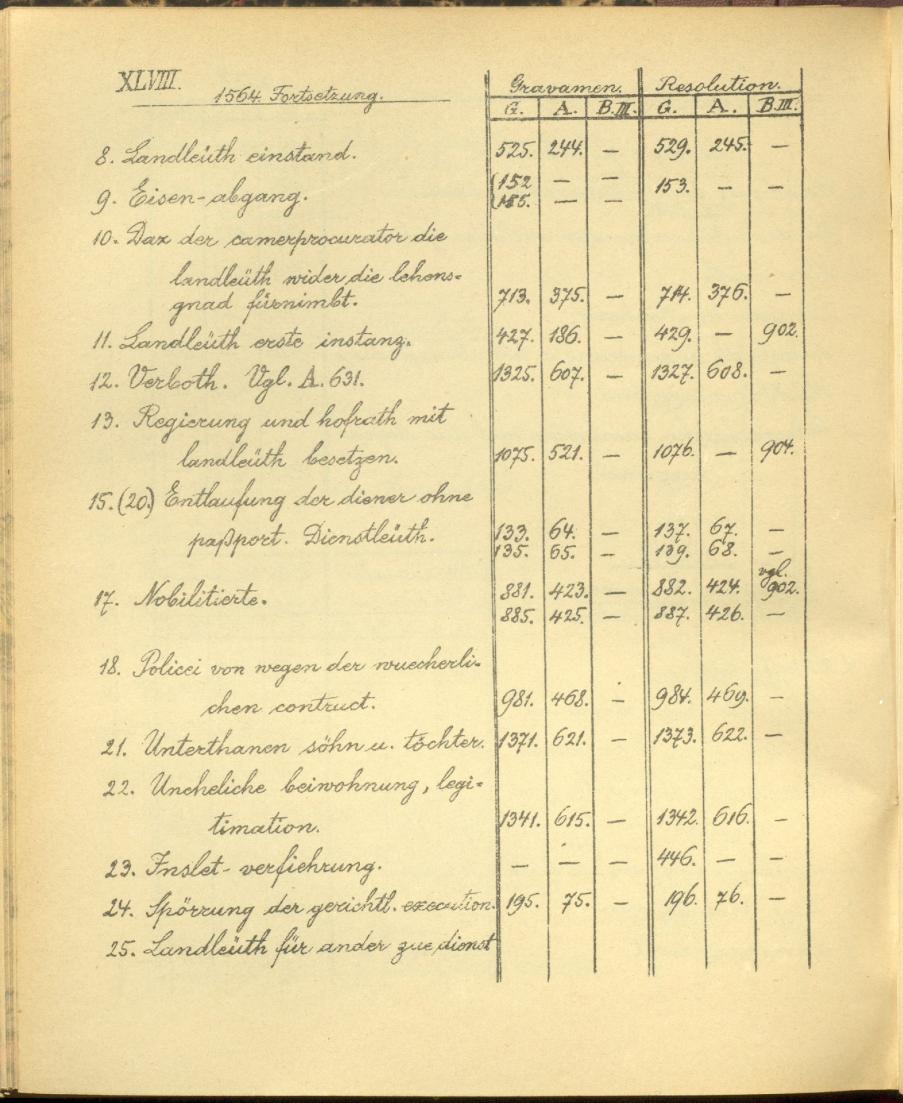 XLVIII.
1564. Fortsetzung.
Gravamen. Resolution.
G. A. B.III. G. A. B.III.
8. Landleüth einstand. 525. 244. — 529. 245. —
9. Eisen-abgang. (152 — — 153. — —
(155. — —
10. Daz der camerprocurator die
landleüth wider die lehens-
gnad fürnimbt. 713. 375. — 714. 376. —
11. Landleüth erste instanz. 427. 186. — 429. — 902.
12. Verboth. Vgl. A. 631. 1325. 607. — 1327. 608. —
13. Regierung und hofrath mit
landleüth besetzen. 1075. 521. — 1076. — 904.
15. (20.) Entlaufung der diener ohne
paßport. Dienstleüth. 133. 64. — 137. 67. —
135. 65. — 139. 68. —
vgl.
17. Nobilitierte. 881. 423. — 882. 424. 902.
885. 425. — 887. 426. —
18. Policei von wegen der wuecherli-
chen contract. 981. 468. — 984. 469. —
21. Unterthanen söhn u. töchter. 1371. 621. — 1373. 622. —
22. Uneheliche beiwohnung, legi-
timation. 1341. 615. — 1342. 616. —
23. Inslet-verfiehrung. — — — 446. — —
24. Spörrung der gerichtl. execution. 195. 75. — 196. 76. —
25. Landleüth für ander zue dienst